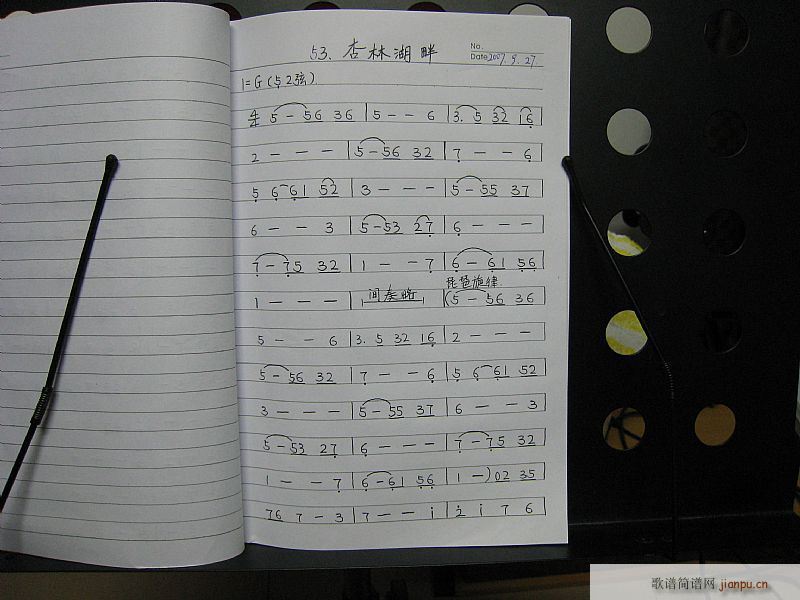 53. 杏林湖畔
No.
Date 2007. 9. 27
1=G (5 2弦)
5 - 56 36 | 5 - - 6 | 3. 5 32 16 |
2 - - - | 5 - 56 32 | 7 - - 6 |
5 6 - 61 52 | 3 - - - | 5 - 55 37 |
6 - - 3 | 5 - 53 27 | 6 - - - |
7 - 75 32 | 1 - - 7 | 6 - 61 56 |
琵琶旋律
1 - - - | 间奏略 | (5 - 56 36 |
5 - - 6 | 3. 5 32 16 | 2 - - - |
5 - 56 32 | 7 - - 6 | 5 6 61 52 |
3 - - - | 5 - 55 37 | 6 - - 3 |
5 - 53 27 | 6 - - - | 7 - 75 32 |
1 - - 7 | 6 - 61 56 | 1 -) 02 35 |
76 7 - 3 | 7 - - i | 2 i 7 6 |
歌谱简谱网 jianpu.cn